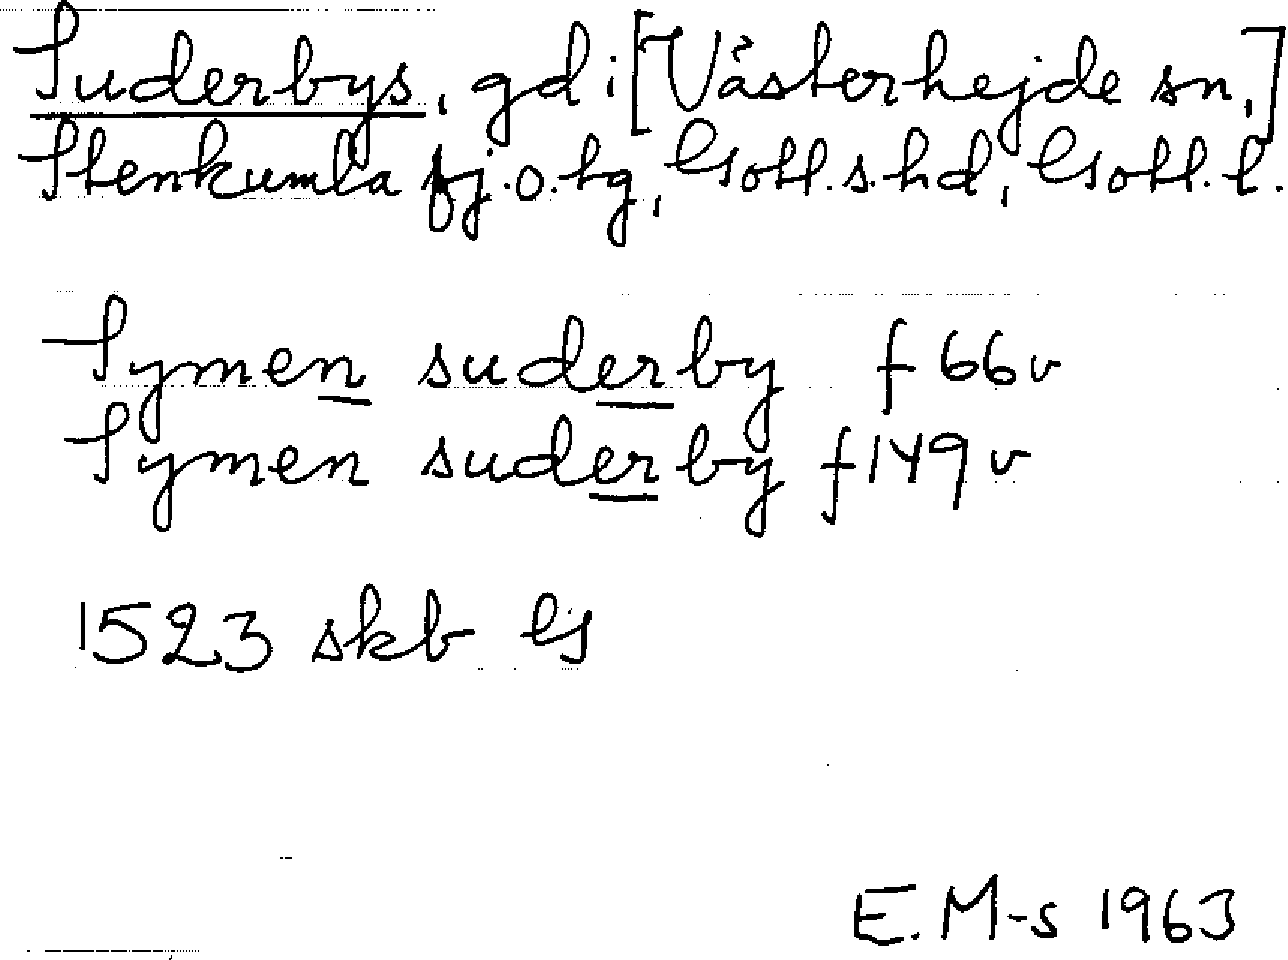 Suderbys, gd i [Västerhejde sn,]
Stenkumla fj. o. tg, Gotl. s. hd, Gotl. l.
Symen suderby f 66 v
Symen suderby f 149 v
1523 skb G
E. M-s 1963